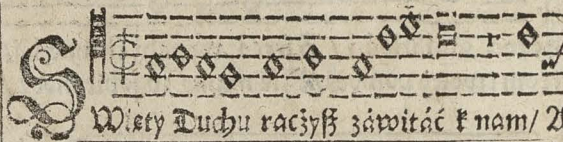 SWiety Duchu racżyſß záwitáć k nam/